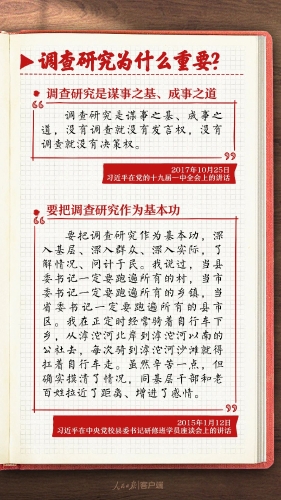 调查研究为什么重要?
调查研究是谋事之基、成事之道
“
调查研究是谋事之基、成事之
道，没有调查就没有发言权，没有
调查就没有决策权。
”
2017年10月25日
习近平在党的十九届一中全会上的讲话
要把调查研究作为基本功
“
要把调查研究作为基本功，深
入基层、深入群众、深入实际，了
解情况、问计于民。我说过，当县
委书记一定要跑遍所有的村，当市
委书记一定要跑遍所有的乡镇，当
省委书记一定要跑遍所有的县市
区。我在正定时经常骑着自行车下
乡，从滹沱河北岸到滹沱河以南的
公社去，每次骑到滹沱河沙滩就得
扛着自行车走。虽然辛苦一点，但
确实摸清了情况，同基层干部和老
百姓拉近了距离、增进了感情。
”
2015年1月12日
习近平在中央党校县委书记研修班学员座谈会上的讲话
人民日报|客户端